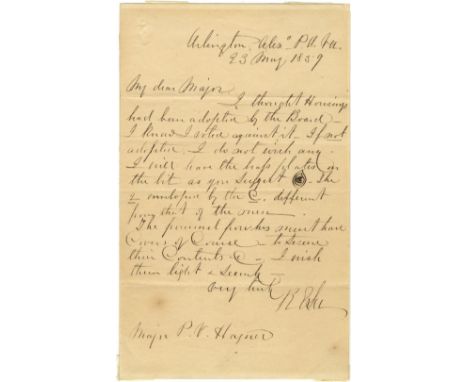 Arlington, Alexa P.O. Va.
23 May 1859
My dear Major
I thought Housings
had been adopted by the Board -
I know I voted against it - If not
adopted I do not wish any -
I will have the brass plates on
the bit as you suggest - The
2 enveloped by the C. different
from that of the men
The pommel pouches must have
Covers of Course - to secure
their Contents &c - I wish
them light & secure -
very truly
R E Lee
Major P. V. Hagner